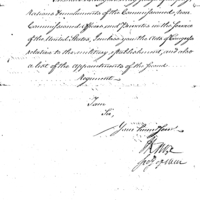 Rations & emoluments of the Commissioned, non
Commissioned officers and Privates in the service
of the United States, I enclose you the Acts of Congress
relative to the military establishment, and also
a list of the appointments of the
Regiment.
I am
Sir,
Your hum. Serv.
H Knox
Secy of War